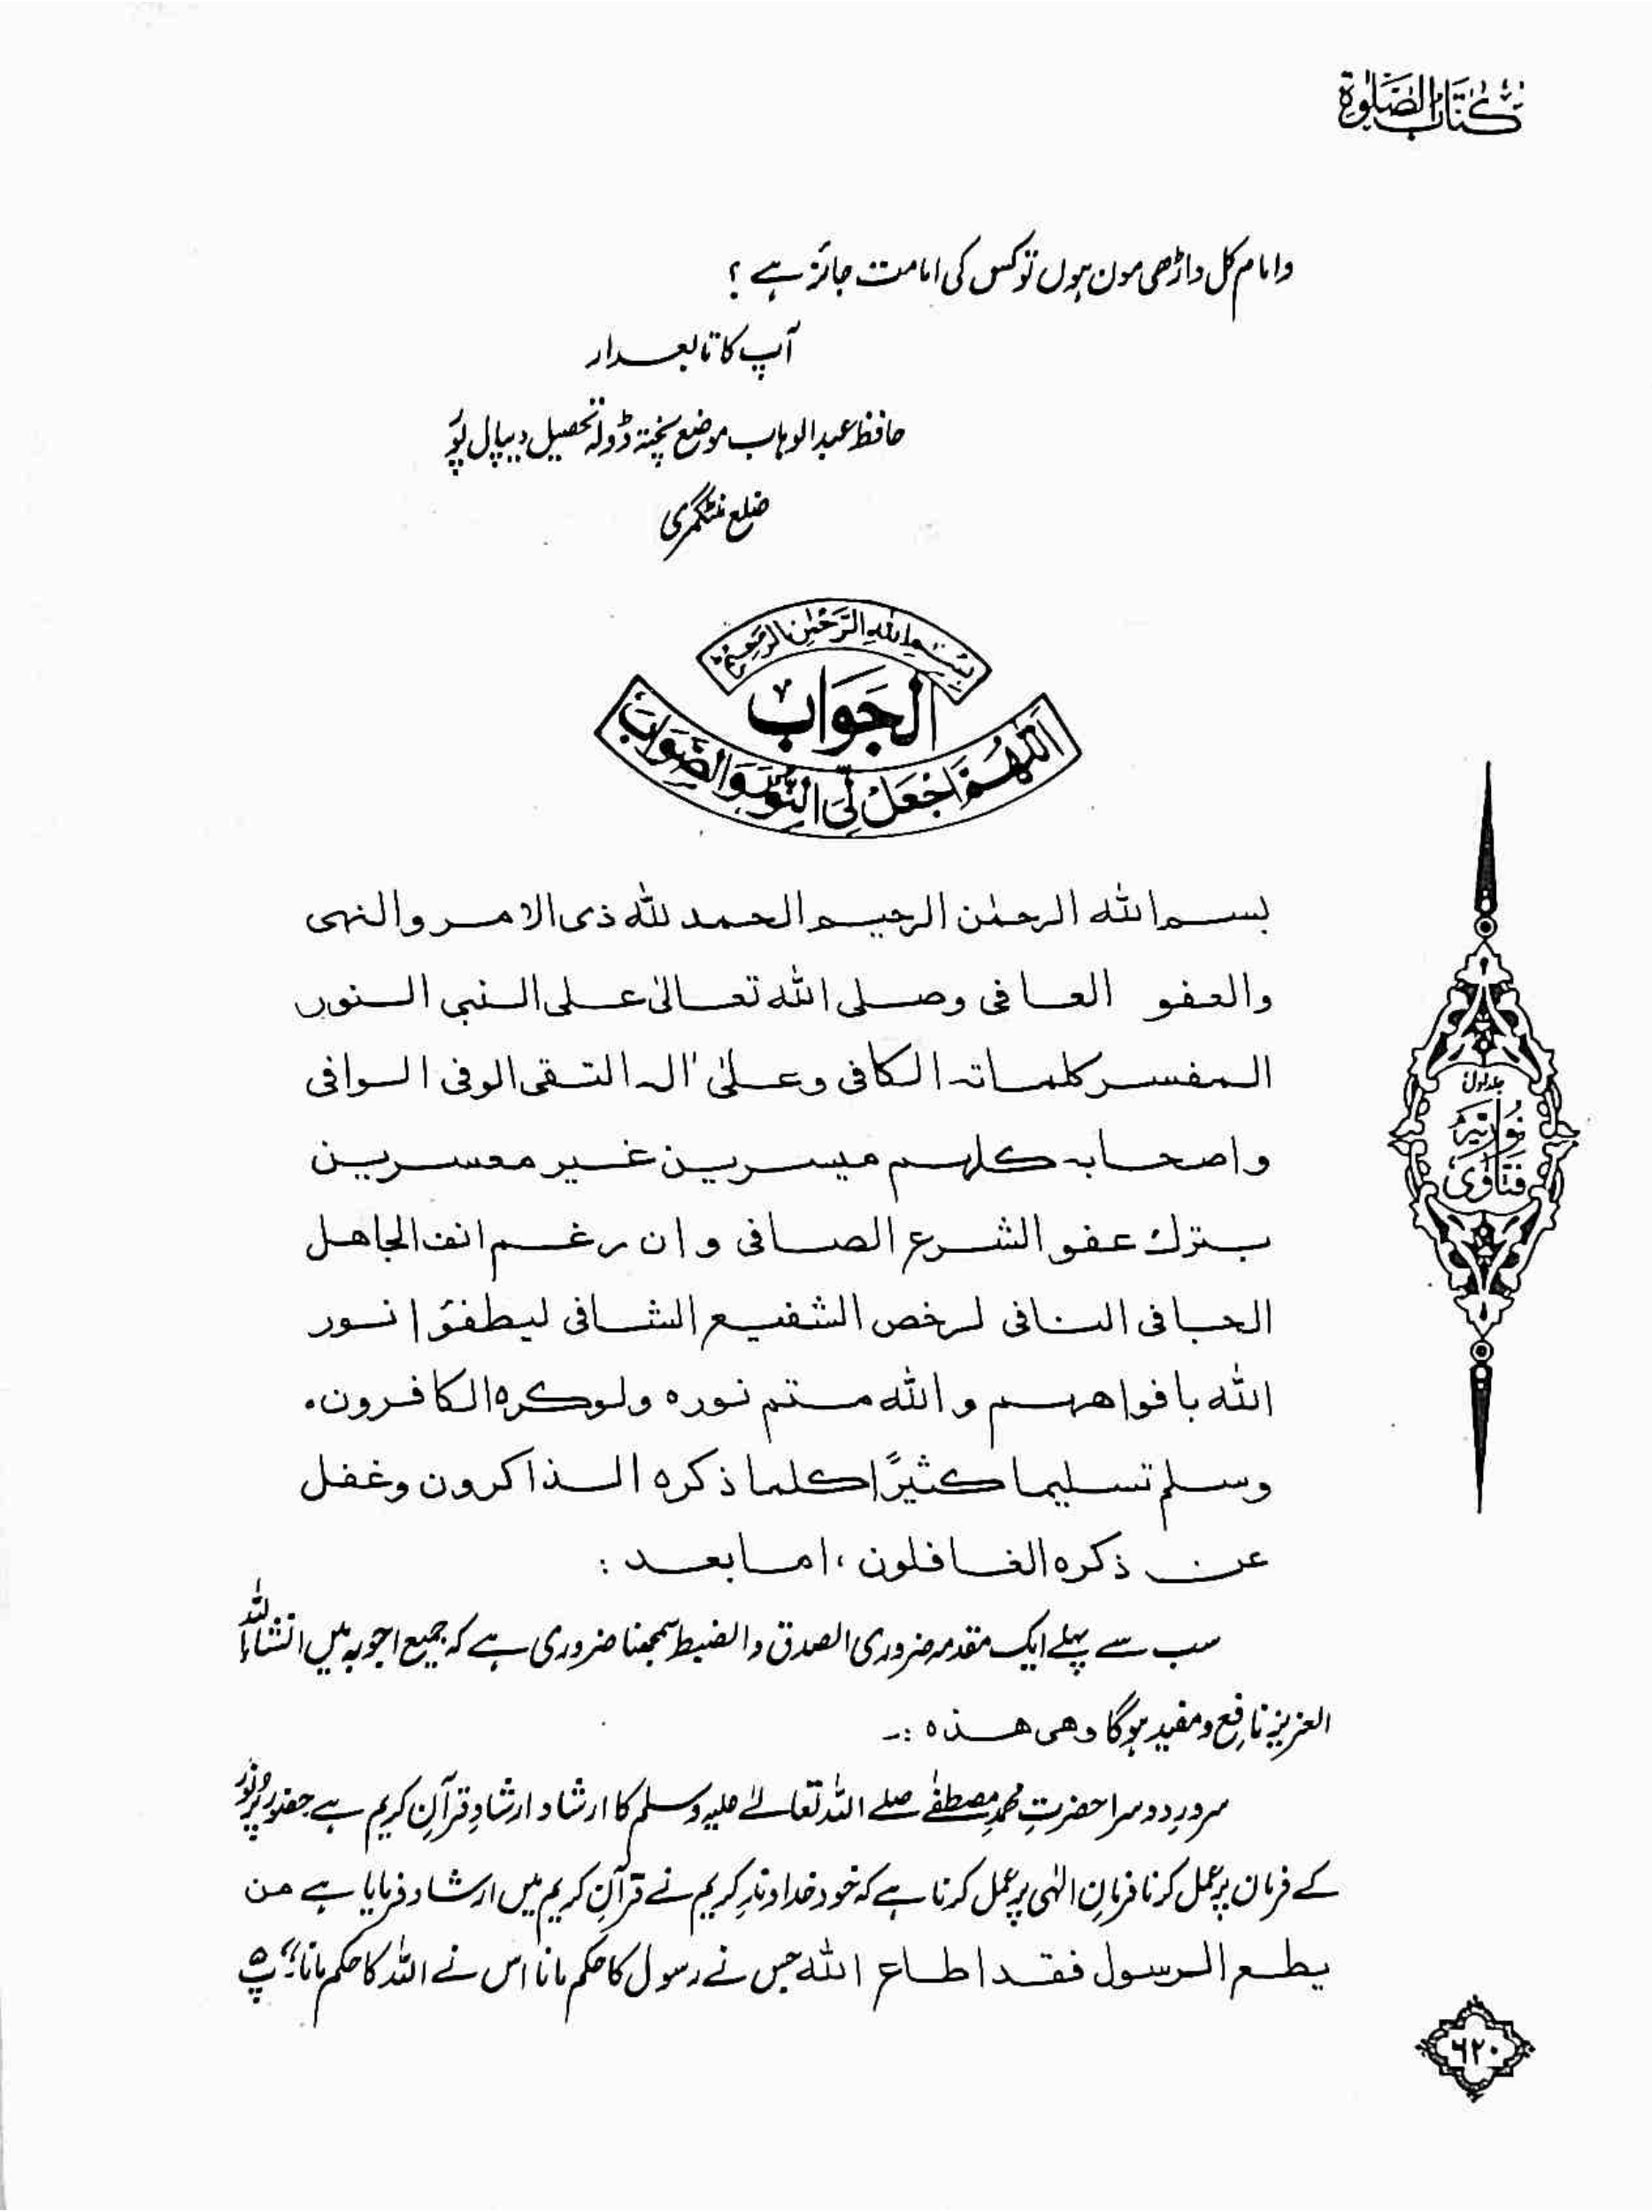 كتاب الصلوة
وامام کل داڑھی مون ہوں تو کس کی امامت جائز ہے ؟
آپ کا تابعدار
حافظ عبدالوہاب موضع پختہ ڈولہ تحصیل دیپال پور
ضلع منٹگمری
بسم الله الرحمن الرحيم
الجواب
اللهم اجعل لي النور والصواب
بسم الله الرحمٰن الرحيم الحمد لله ذى الامر والنهى
والعفو العافى وصلى الله تعالىٰ على النبى النور
المفسر كلماته الكافى وعلىٰ اٰله التقى الوفى الوافى
واصحابه كلهم ميسرين غير معسرين
بترك عفو الشرع الصافى وان رغم انف الجاهل
الجافى النافى لرخص الشفيع الشافى ليطفؤا نور
الله بافواههم والله متم نوره ولوكره الكافرون۔
وسلم تسليما كثيرًا كلما ذكره الذاكرون وغفل
عن ذكره الغافلون ، اما بعد :
سب سے پہلے ایک مقدمہ ضروری الصدق والضبط سمجھنا ضروری ہے کہ جمیع اجوبہ میں انشاءاللہ
العزیز نافع و مفید ہوگا وهى هذه :۔
سرورِ دوسرا حضرتِ محمد مصطفٰے صلے اللہ تعالےٰ علیہ وسلم کا ارشاد ارشادِ قرآنِ کریم ہے حضور پُرنور
کے فرمان پر عمل کرنا فرمانِ الٰہی پر عمل کرنا ہے کہ خود خداوندِ کریم نے قرآنِ کریم میں ارشاد فرمایا ہے من
يطع الرسول فقد اطاع الله جس نے رسول کا حکم مانا اس نے اللہ کا حکم مانا" پ ۵
جلد اول
نوریہ
فتاوی
۶۲۰